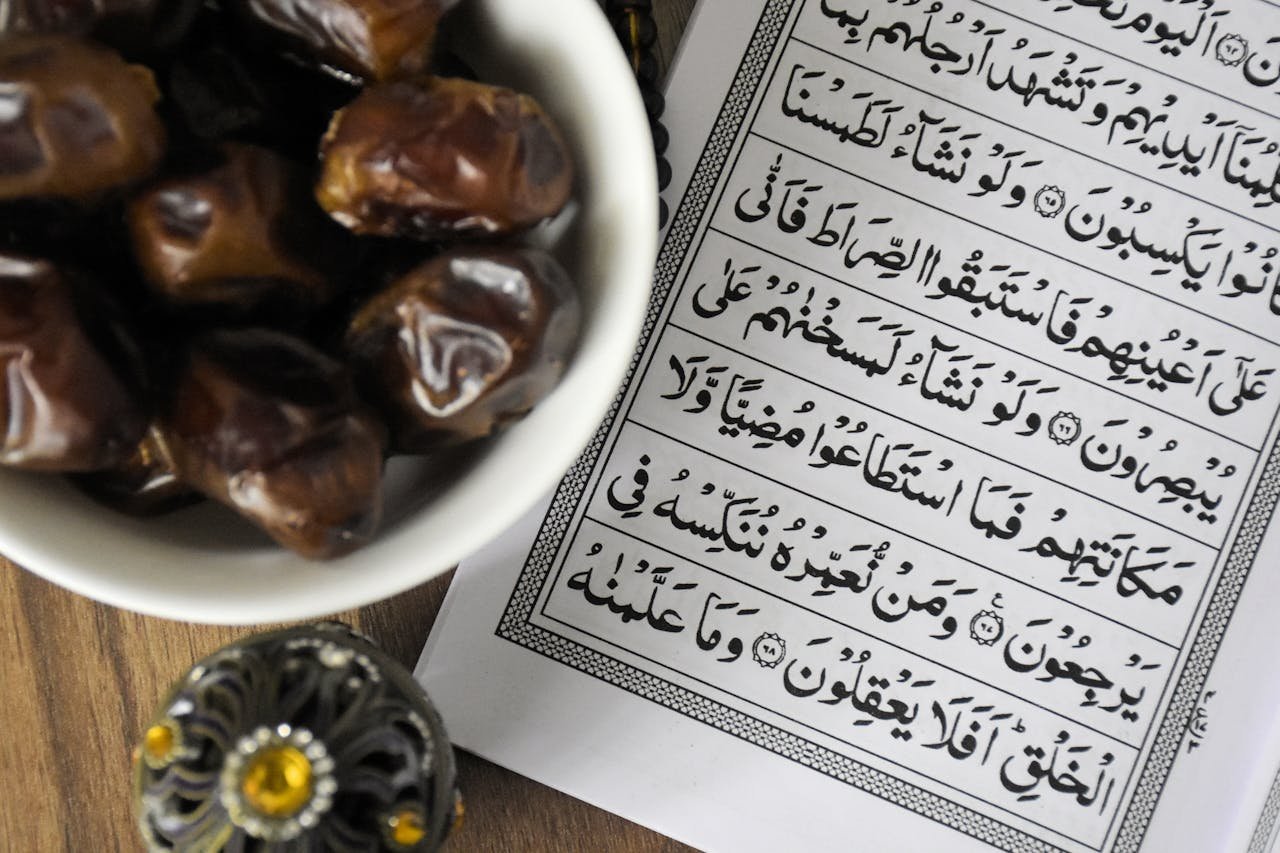 اَلْيَوْمَ
اَيْدِيْهِمْ وَتَشْهَدُ اَرْجُلُهُمْ بِمَا
انُوْا يَكْسِبُوْنَ ۶۵ وَلَوْ نَشَآءُ لَطَمَسْنَا
عَلٰۤى اَعْيُنِهِمْ فَاسْتَبَقُوا الصِّرَاطَ فَاَنّٰى
يُبْصِرُوْنَ ۶۶ وَلَوْ نَشَآءُ لَمَسَخْنٰهُمْ عَلٰى
مَكَانَتِهِمْ فَمَا اسْتَطَاعُوْا مُضِيًّا وَّلَا
يَرْجِعُوْنَ ع وَمَنْ نُّعَمِّرْهُ نُنَكِّسْهُ فِى
الْخَلْقِؕ اَفَلَا يَعْقِلُوْنَ ۶۸ وَمَا عَلَّمْنٰهُ